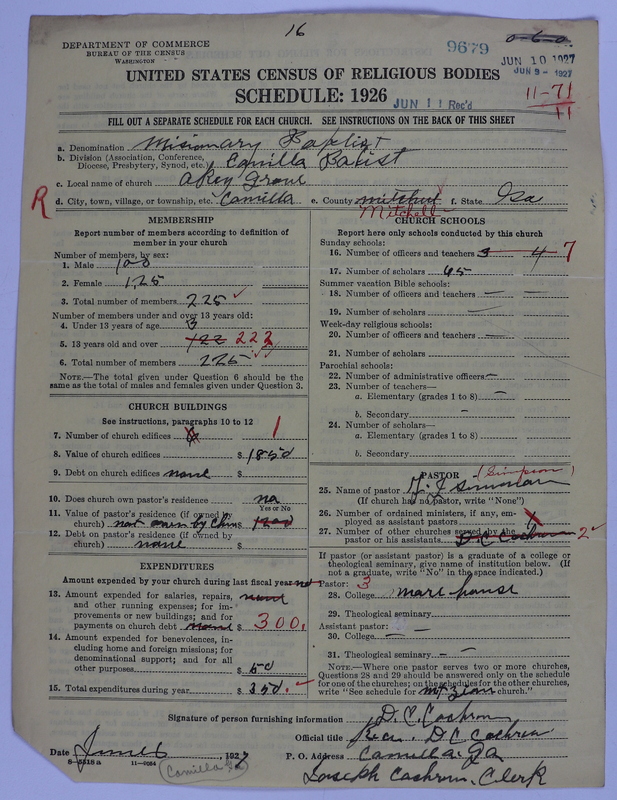 16
DEPARTMENT OF COMMERCE
BUREAU OF THE CENSUS
WASHINGTON
9679
JUN 10 1927
JUN 9 - 1927
UNITED STATES CENSUS OF RELIGIOUS BODIES
SCHEDULE: 1926
JUN 11 Rec'd
11-71
11
FILL OUT A SEPARATE SCHEDULE FOR EACH CHURCH. SEE INSTRUCTIONS ON THE BACK OF THIS SHEET
a. Denomination Misionary Baptist
b. Division (Association, Conference, Diocese, Presbytery, Synod, etc.) Camilla Batist
c. Local name of church Grove
R
d. City, town, village, or township, etc. Camilla e. County Mitchell f. State Ga
MEMBERSHIP
Report number of members according to definition of
member in your church
Number of members, by sex:
1. Male 100
2. Female 125
3. Total number of members 225
Number of members under and over 13 years old:
4. Under 13 years of age 3
5. 13 years old and over 122 222
6. Total number of members 225
NOTE.—The total given under Question 6 should be
same as the total of males and females given under Question 3.
CHURCH BUILDINGS
See instructions, paragraphs 10 to 12
7. Number of church edifices 1
8. Value of church edifices $ 1850
9. Debt on church edifices none
10. Does church own pastor's residence no
Yes or No
11. Value of pastor's residence (if owned by
church) not own by $ 1200
12. Debt on pastor's residence (if owned by
church) none
EXPENDITURES
Amount expended by your church during last fiscal year
13. Amount expended for salaries, repairs,
and other running expenses; for im-
provements or new buildings; and for
payments on church debt $ 300.
14. Amount expended for benevolences, in-
cluding home and foreign missions; for
denominational support; and for all
other purposes $ 50
15. Total expenditures during year $ 350.
CHURCH SCHOOLS
Report here only schools conducted by this church
Sunday schools:
16. Number of officers and teachers 3 4 7
17. Number of scholars 65
Summer vacation Bible schools:
18. Number of officers and teachers —
19. Number of scholars —
Week-day religious schools:
20. Number of officers and teachers —
21. Number of scholars
Parochial schools:
22. Number of administrative officers —
23. Number of teachers—
a. Elementary (grades 1 to 8) —
b. Secondary —
24. Number of scholars—
a. Elementary (grades 1 to 8)
b. Secondary
PASTOR
(Simpson)
25. Name of pastor
(If church has no pastor, write "None")
26. Number of ordained ministers, if any, em-
ployed as assistant pastors
27. Number of other churches served by the
pastor or his assistants D. C. Cochron 2
If pastor (or assistant pastor) is a graduate of a college or
theological seminary, give name of institution below. (If
not a graduate, write "No" in the space indicated.)
Pastor: 3
28. College
29. Theological seminary
Assistant pastor:
30. College — —
31. Theological seminary — —
NOTE.—Where one pastor serves two or more churches,
Questions 28 and 29 should be answered only on the schedule
for one of the churches; on the schedules for the other churches,
write "See schedule for Mt Zion church."
Signature of person furnishing information D. C. Cochron
Official title D C Cochron
Date June 6, 1927 P. O. Address Camilla Ga
8-5518a 11-9084
Camilla Ga
Joseph Cochron, Clerk